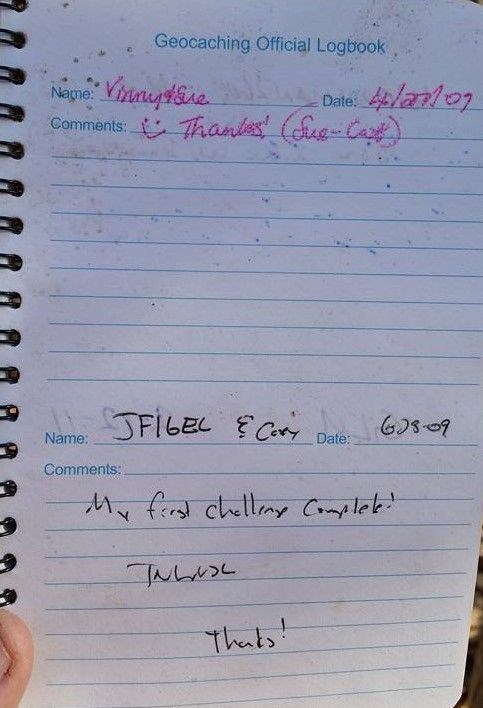 Geocaching Official Logbook
Name: Vinny & Sue Date: 4/27/09
Comments: Thanks!
Name: JFIGEL & Cory Date: 6-28-09
Comments:
My first challenge complete!
TNLNSL
Thanks!